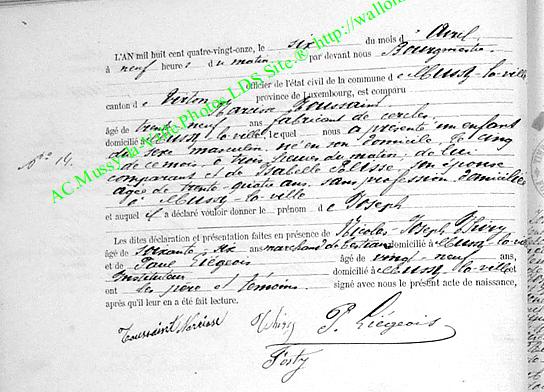 L'AN mil huit cent quatre-vingt-onze, le six du mois d'Avril
à neuf heures du matin par devant nous Bourgmestre
Officier de l'état civil de la commune de Mussy-la-ville
canton de Virton, province de Luxembourg, est comparu
Narcisse Toussaint
âgé de trente neuf ans fabricant de cercles
domicilié à Mussy-la-ville, lequel nous a présenté un enfant
du sexe masculin, né en son domicile, le cinq
de ce mois à trois heures du matin, de lui
comparant et de Isabelle son épouse
âgée de trente-quatre ans, sans profession domiciliée
à Mussy-la-ville
et auquel il a déclaré vouloir donner le prénom de Joseph
Nº 14.
Les dites déclaration et présentation faites en présence de Nicolas-Joseph Thiry
âgé de soixante six ans marchand de bestiaux domicilié à Mussy-la-ville
et de Paul Liégeois âgé de vingt-neuf ans,
Instituteur domicilié à Mussy-la-ville et
ont les père et témoins signé avec nous le présent acte de naissance,
après qu'il leur en a été fait lecture.
Toussaint Narcisse Thiry P. Liégeois
AC.Mussy-la-Ville.Photos LDS Site.® http://wallon